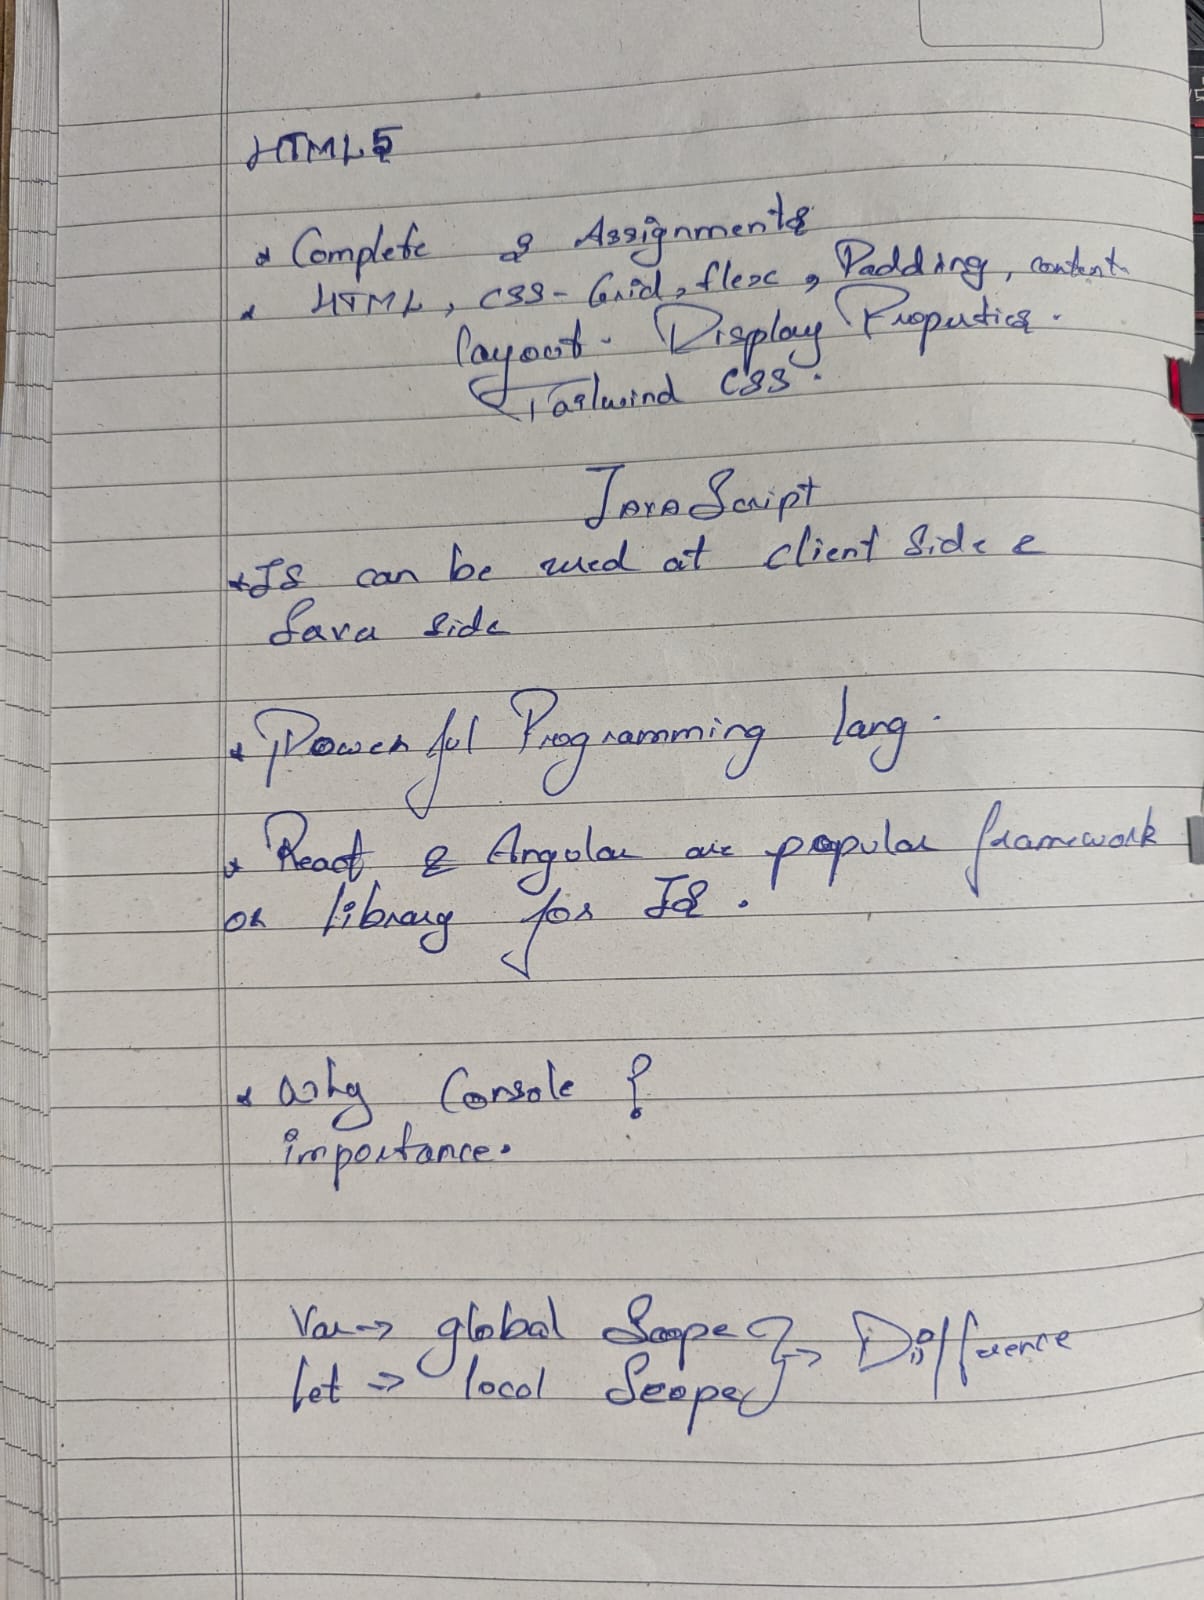 HTML5
* Complete 2 Assignments
* HTML, CSS- Grid, flex, Padding, content
layout. Display Properties.
Tailwind CSS.
JavaScript
* JS can be used at client side &
Sava side
* Powerful Programming lang.
* React & Angular are popular framework
or library for JS.
* Why Console ?
importance.
Var → global Scope } → Difference
let → local Scope